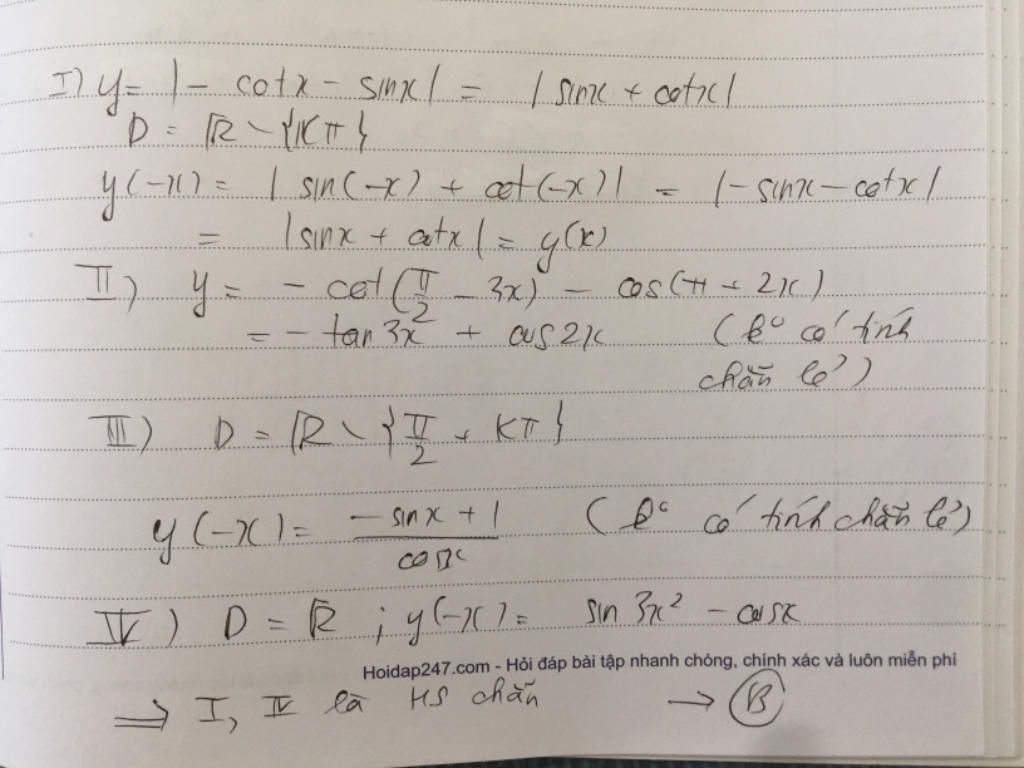 I) y = |- cotx - sinx| = |sinx + cotx|
D = R \ {Kπ}
y(-x) = |sin(-x) + cot(-x)| = |-sinx - cotx|
= |sinx + cotx| = y(x)
II) y = - cot(π/2 - 3x) - cos(π + 2x)
= - tan3x + cos2x (ko có tính
chẵn lẻ)
III) D = R \ {π/2 + Kπ}
y(-x) = (-sinx + 1)/cosx (ko có tính chẵn lẻ)
IV) D = R ; y(-x) = sin 3x² - cosx
Hoidap247.com - Hỏi đáp bài tập nhanh chóng, chính xác và luôn miễn phí
⇒ I, IV là HS chẵn → B